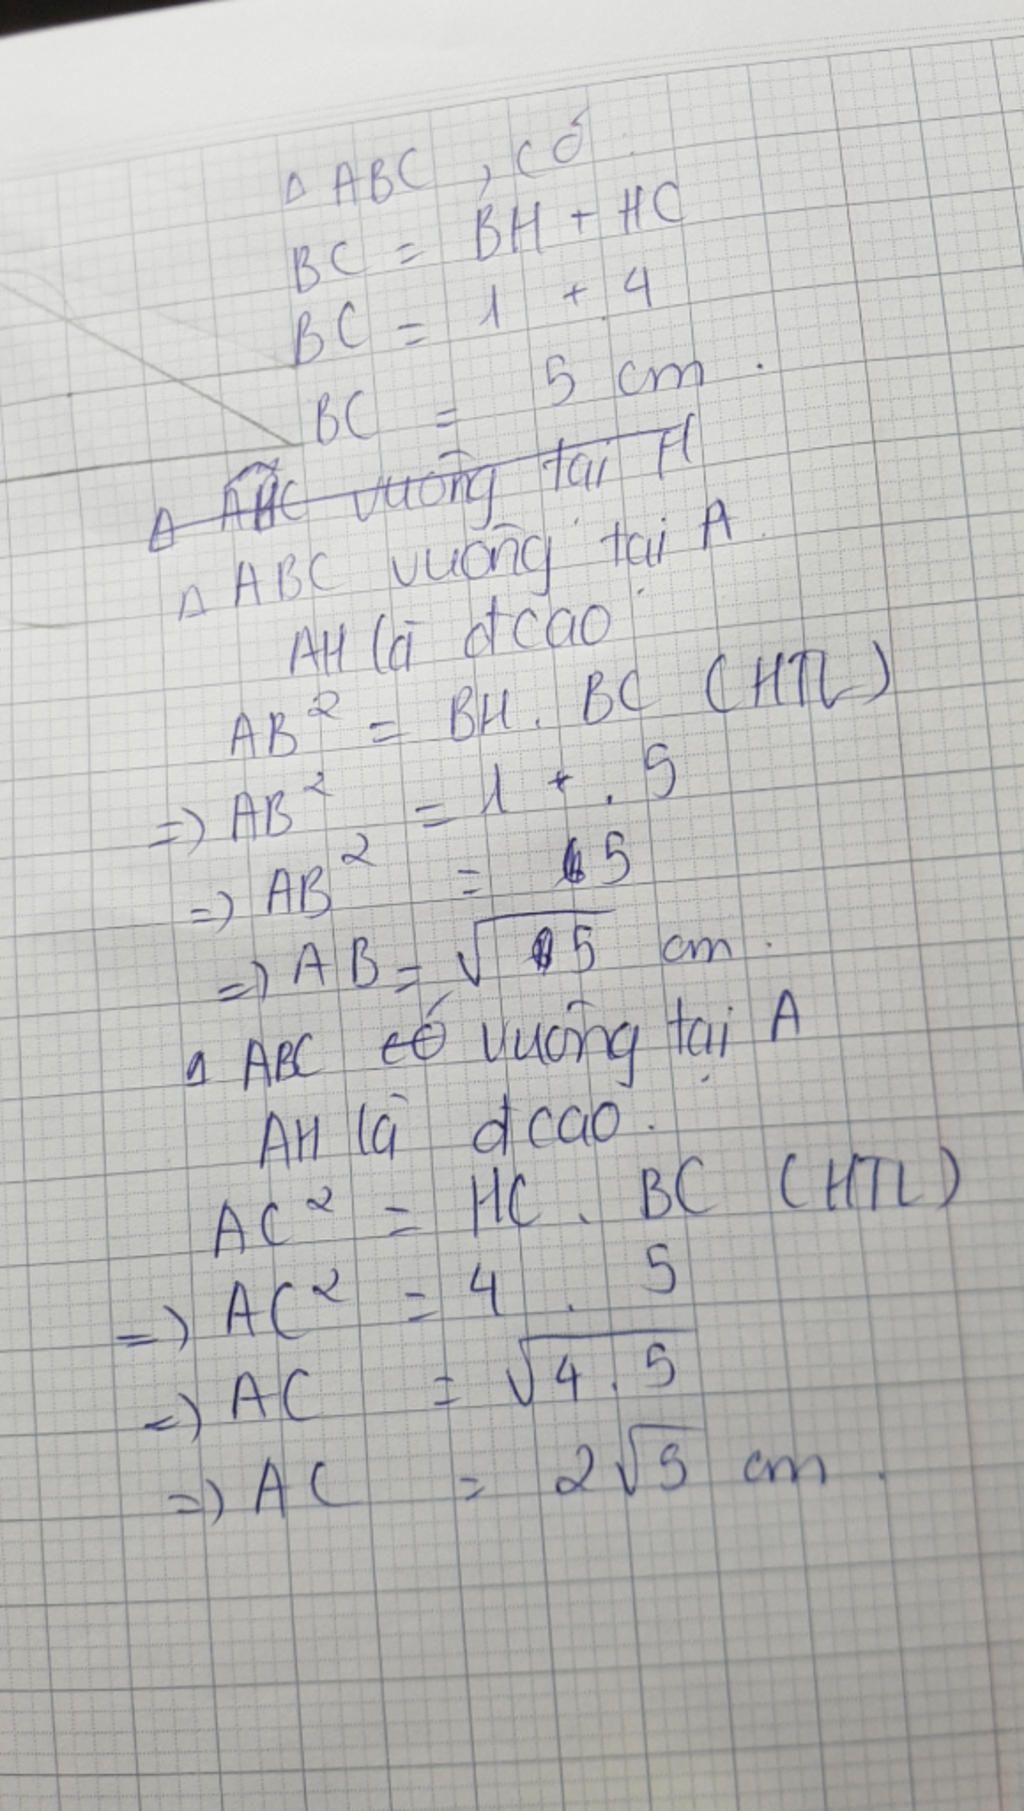 Δ ABC , có
BC = BH + HC
BC = 1 + 4
BC = 5 cm .
Δ AHC vuông tại H
Δ ABC vuông tại A
AH là đcao
AB² = BH . BC (HTL)
=> AB² = 1 . 5
=> AB² = 5
=> AB = √5 cm .
Δ ABC có vuông tại A
AH là đcao .
AC² = HC . BC (HTL)
=> AC² = 4 . 5
=> AC = √4 . 5
=> AC = 2√5 cm .